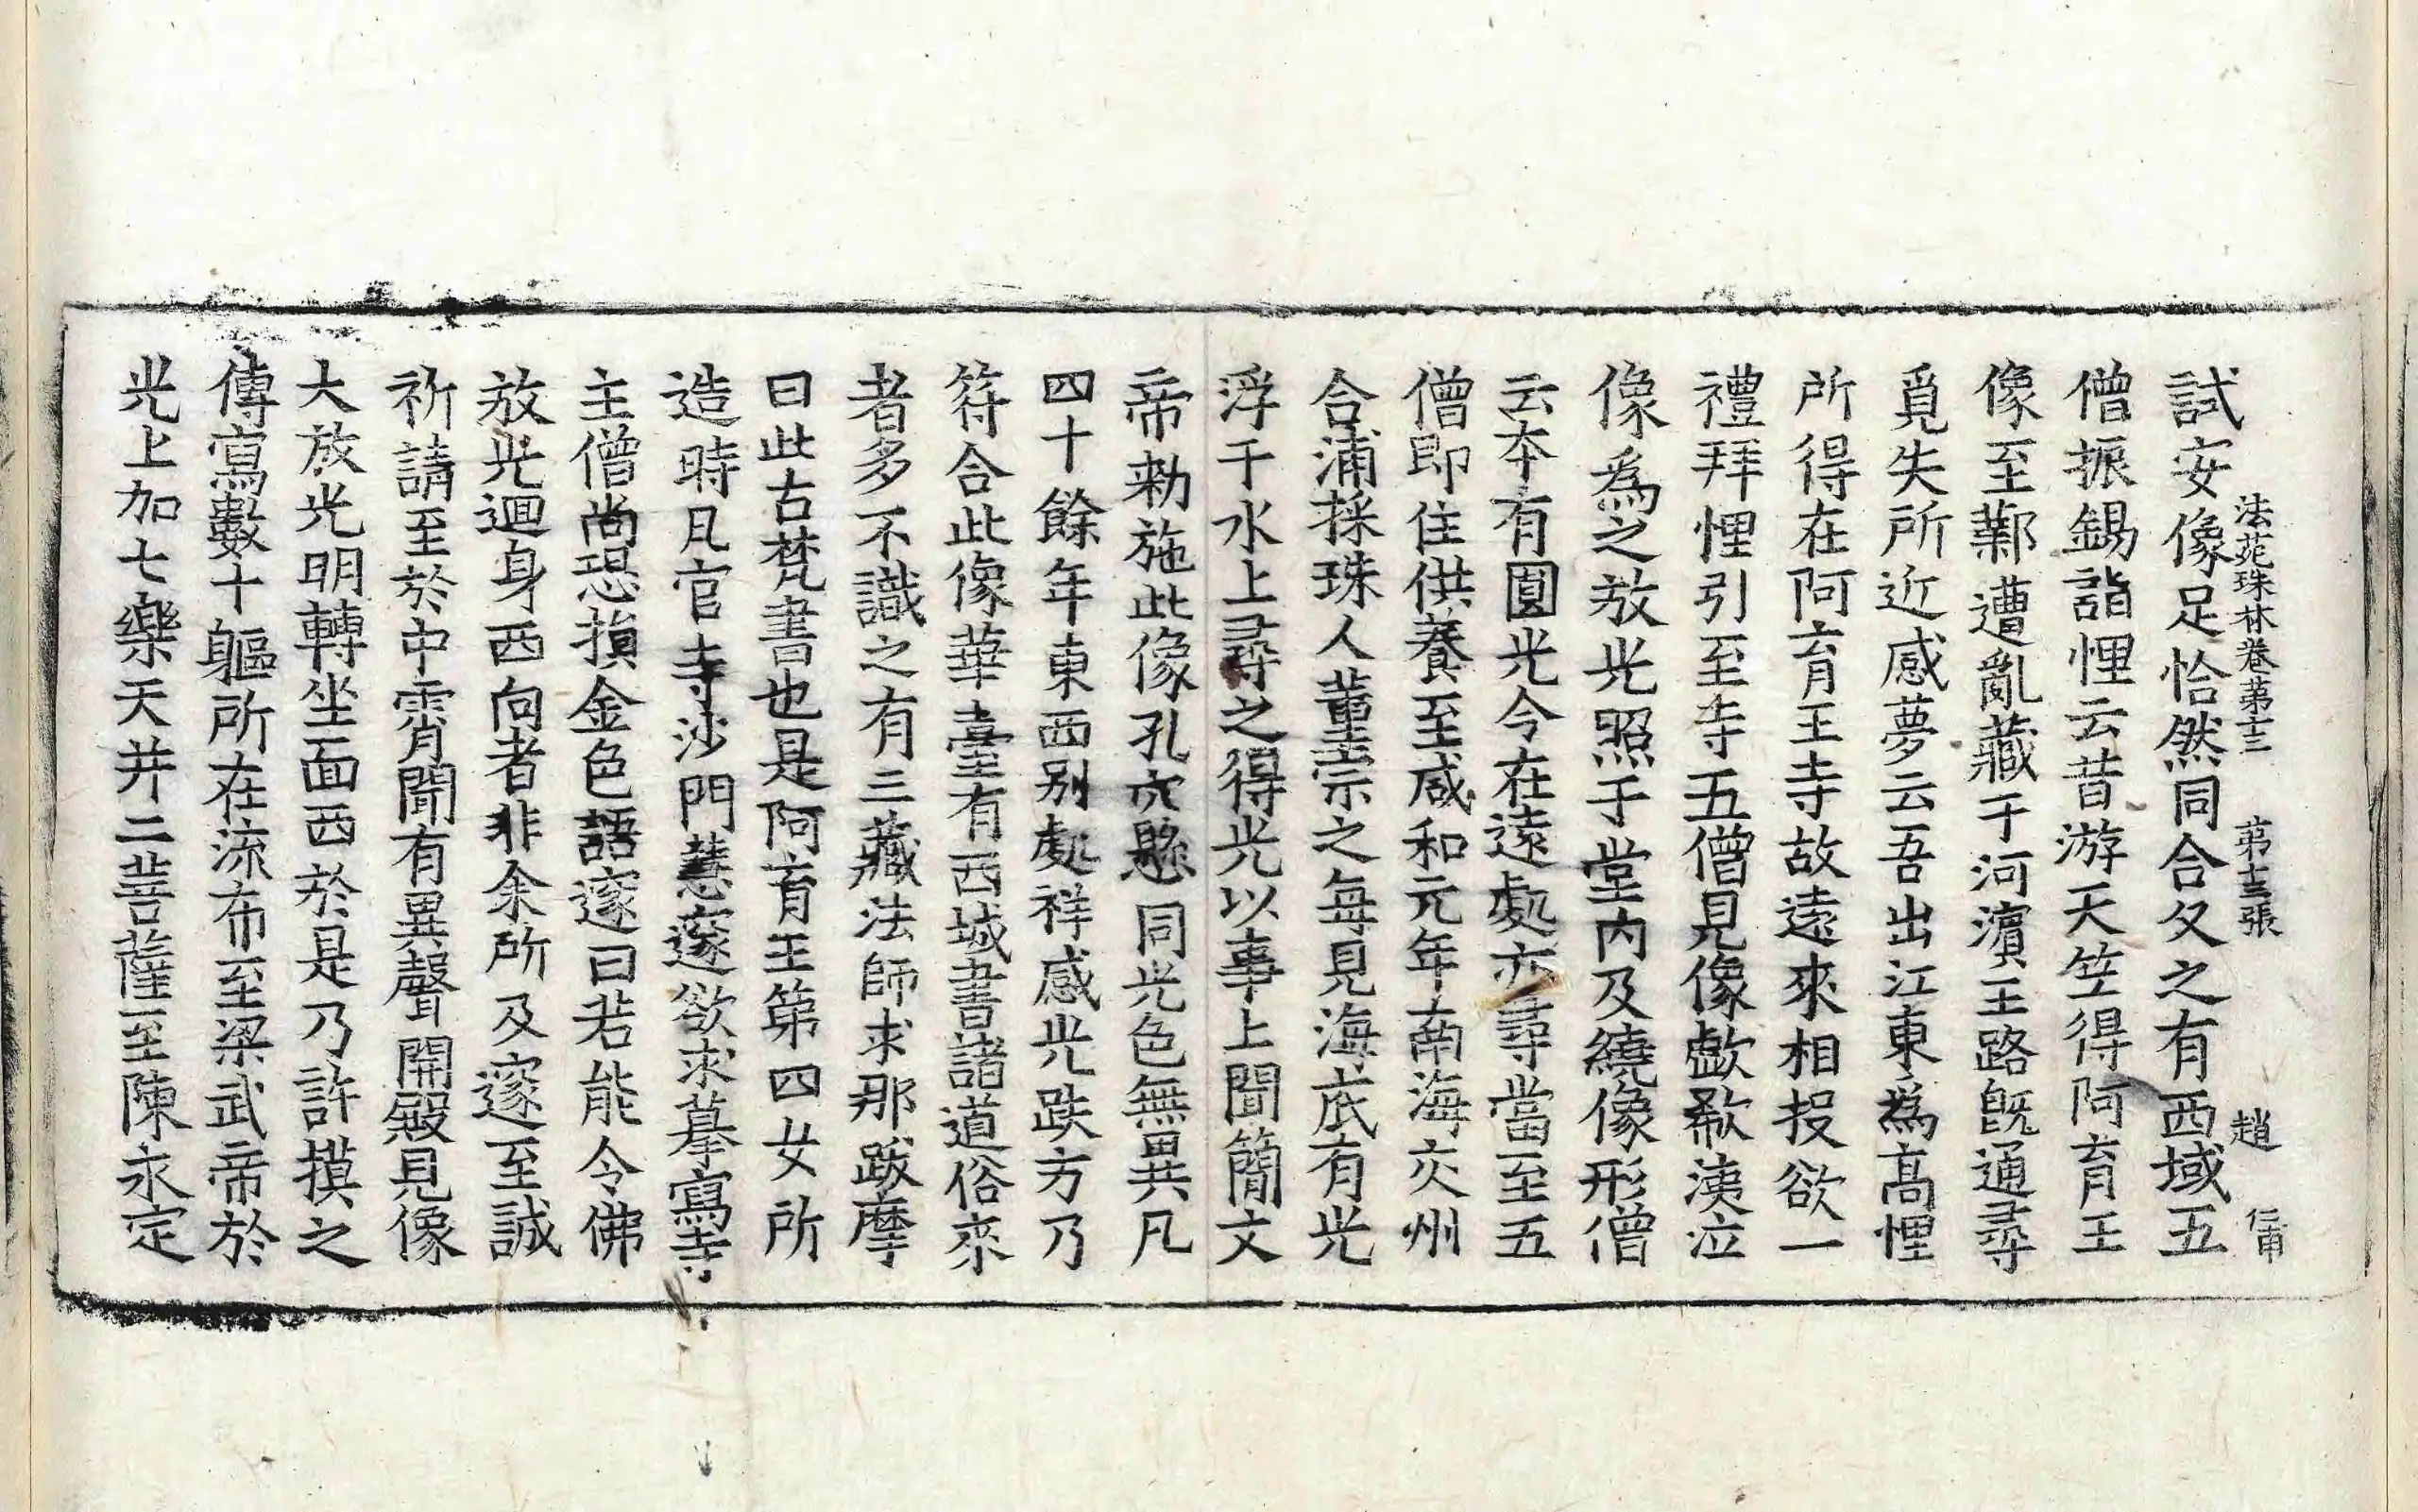 法苑珠林卷第十三 第十三張 趙 仁甫
試安像足恰然同合久之有西域五
僧振錫詣悝云昔游天竺得阿育王
像至鄴遭亂藏于河濱王路旣通尋
覓失所近感夢云吾出江東為高悝
所得在阿育王寺故遠來相投欲一
禮拜悝引至寺五僧見像歔欷洟泣
像爲之放光照于堂内及繞像形僧
云本有圓光今在遠處亦尋當至五
僧即住供養至咸和元年南海交州
合浦採珠人董宗之每見海底有光
浮于水上尋之得光以事上聞簡文
帝勑施此像孔穴懸同光色無異凡
四十餘年東西别處祥感光趺方乃
符合此像華臺有西域書諸道俗來
者多不識之有三藏法師求那跋摩
曰此古梵書也是阿育王第四女所
造時凡官寺沙門慧邃欲求摹寫寺
主僧尚恐損金色語邃曰若能令佛
放光迴身西向者非余所及邃至誠
祈請至於中霄聞有異聲開殿見像
大放光明轉坐面西於是乃許摸之
傳寫數十軀所在流布至梁武帝於
光上加七樂天并二菩薩至陳永定